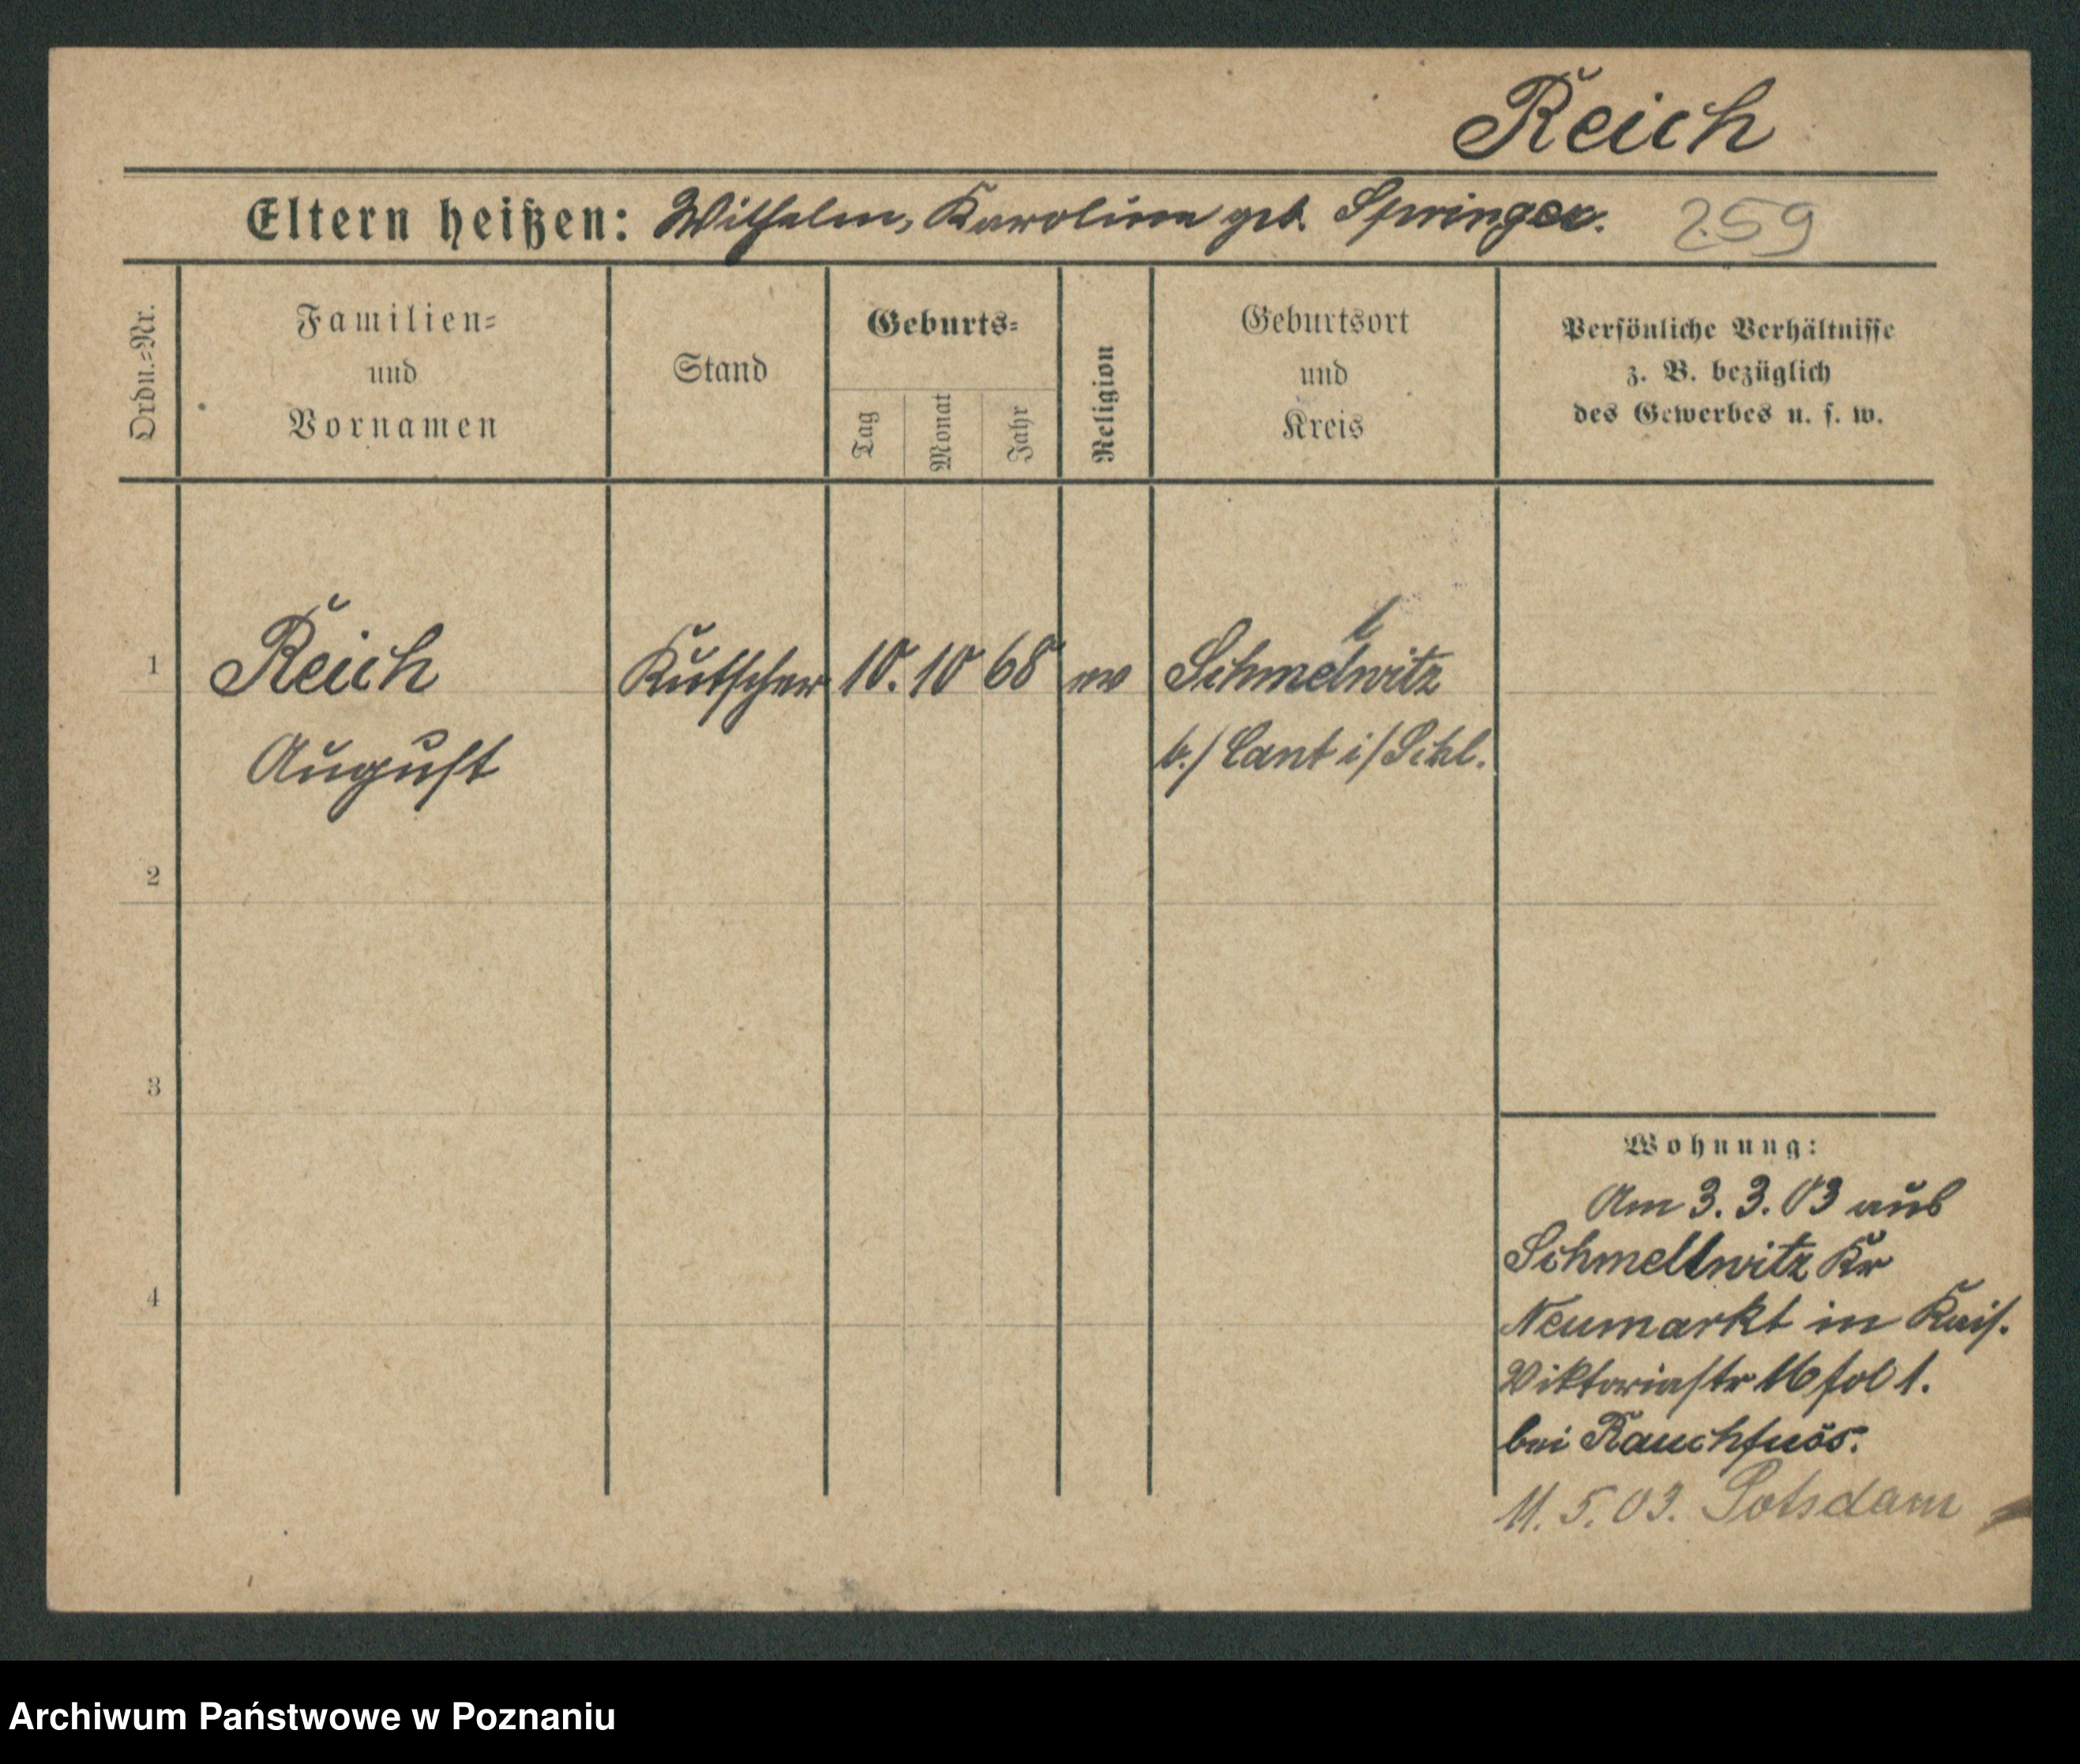 Reich
Eltern heißen: Wilhelm, Karoline geb. Springer. 259
Ordn.=Nr.
Familien=
und
Vornamen
Stand
Geburts=
Tag
Monat
Jahr
Religion
Geburtsort
und
Kreis
Persönliche Verhältnisse
z. B. bezüglich
des Gewerbes u. s. w.
l
1 Reich Kutscher 10. 10 68 ev Schmelwitz
August b./Cant i/Schl.
2
3
4
Wohnung:
Am 3. 3. 03 aus
Schmellwitz Kr
Neumarkt in Kais.
Viktoriastr 16 fol 1.
bei Rauchfuss.
11. 5. 03. Potsdam
Archiwum Państwowe w Poznaniu